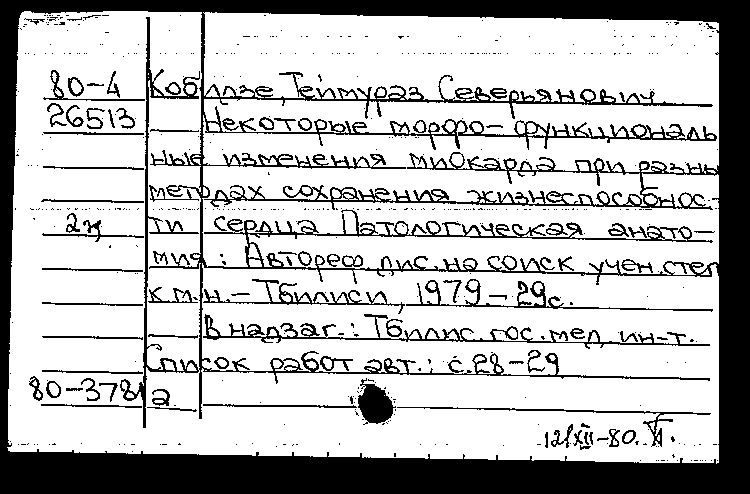 80-4 Кобидзе, Теймураз Северьянович.
26513 Некоторые морфо-функциональ
ные изменения миокарда при разны
методах сохранения жизнеспособнос-
2н ти сердца Патологическая анато-
мия: Автореф. дис. на соиск учен. степ
к.м.н. - Тбилиси, 1979. - 29с.
В надзаг.: Тбилис. гос. мед. ин-т.
Список работ авт.: с. 28-29
80-3781 а
12/XII-80.